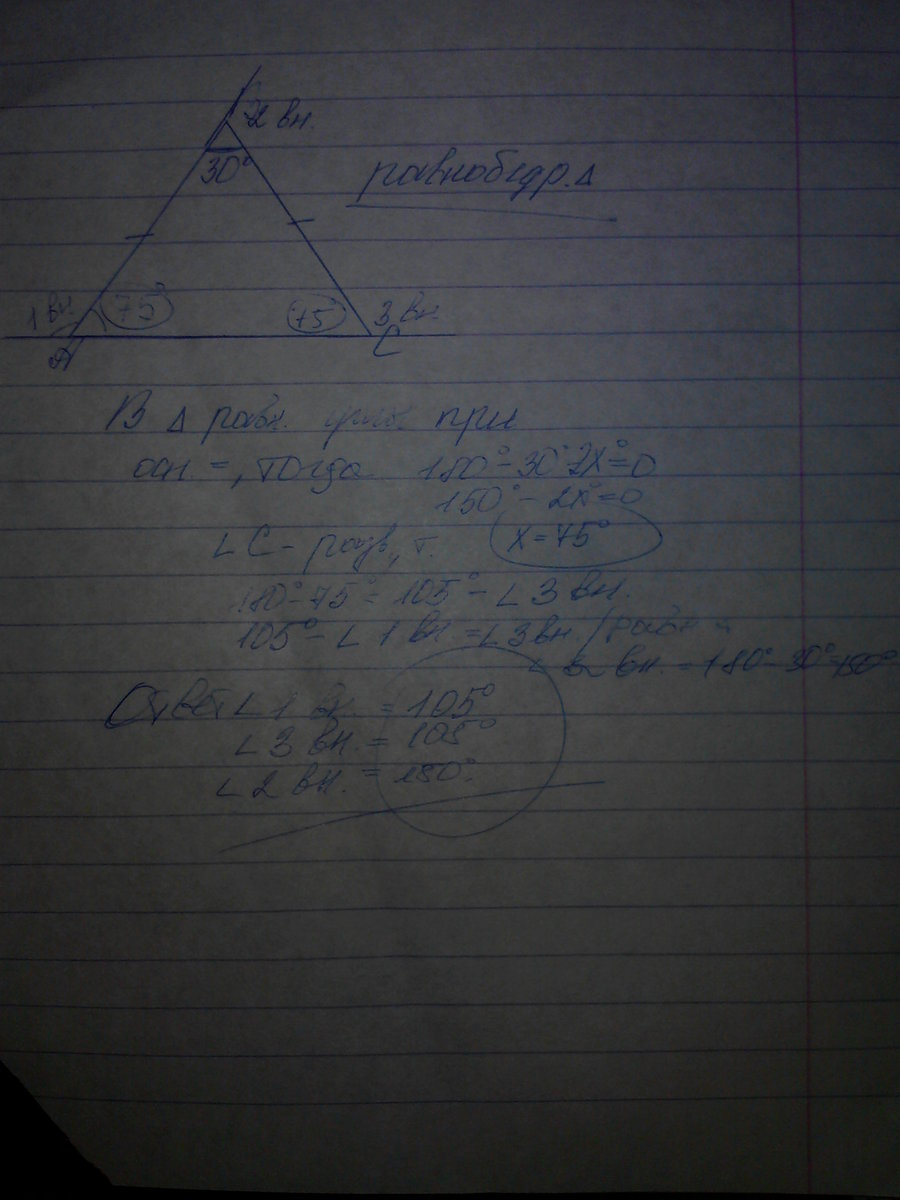 2 вн.
30°
равнобедр. Δ
1 вн.
75°
75
3 вн.
A
C
В Δ равн. при
осн. =, тогда 180° - 30° 2x° = 0
150° - 2x° = 0
∠ C - разв., т. x = 75°
180° - 75° = 105° - ∠ 3 вн.
105° - ∠ 1 вн = ∠ 3 вн.
∠ 2 вн. = 180° - 30° = 150°
Ответ ∠ 1 вн. = 105°
∠ 3 вн. = 105°
∠ 2 вн. = 150°